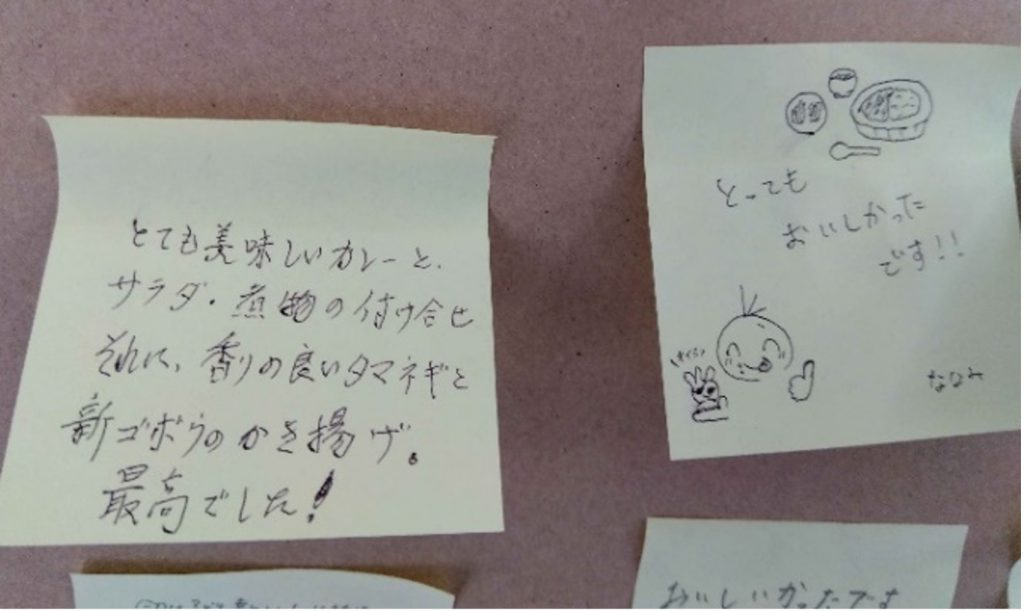 とても美味しいカレーと、
サラダ・煮物の付け合せ
それに、香りの良いタマネギと
新ゴボウのかき揚げ。
最高でした!
とっても
おいしかった
です!!
ななみ
おいしいかったです